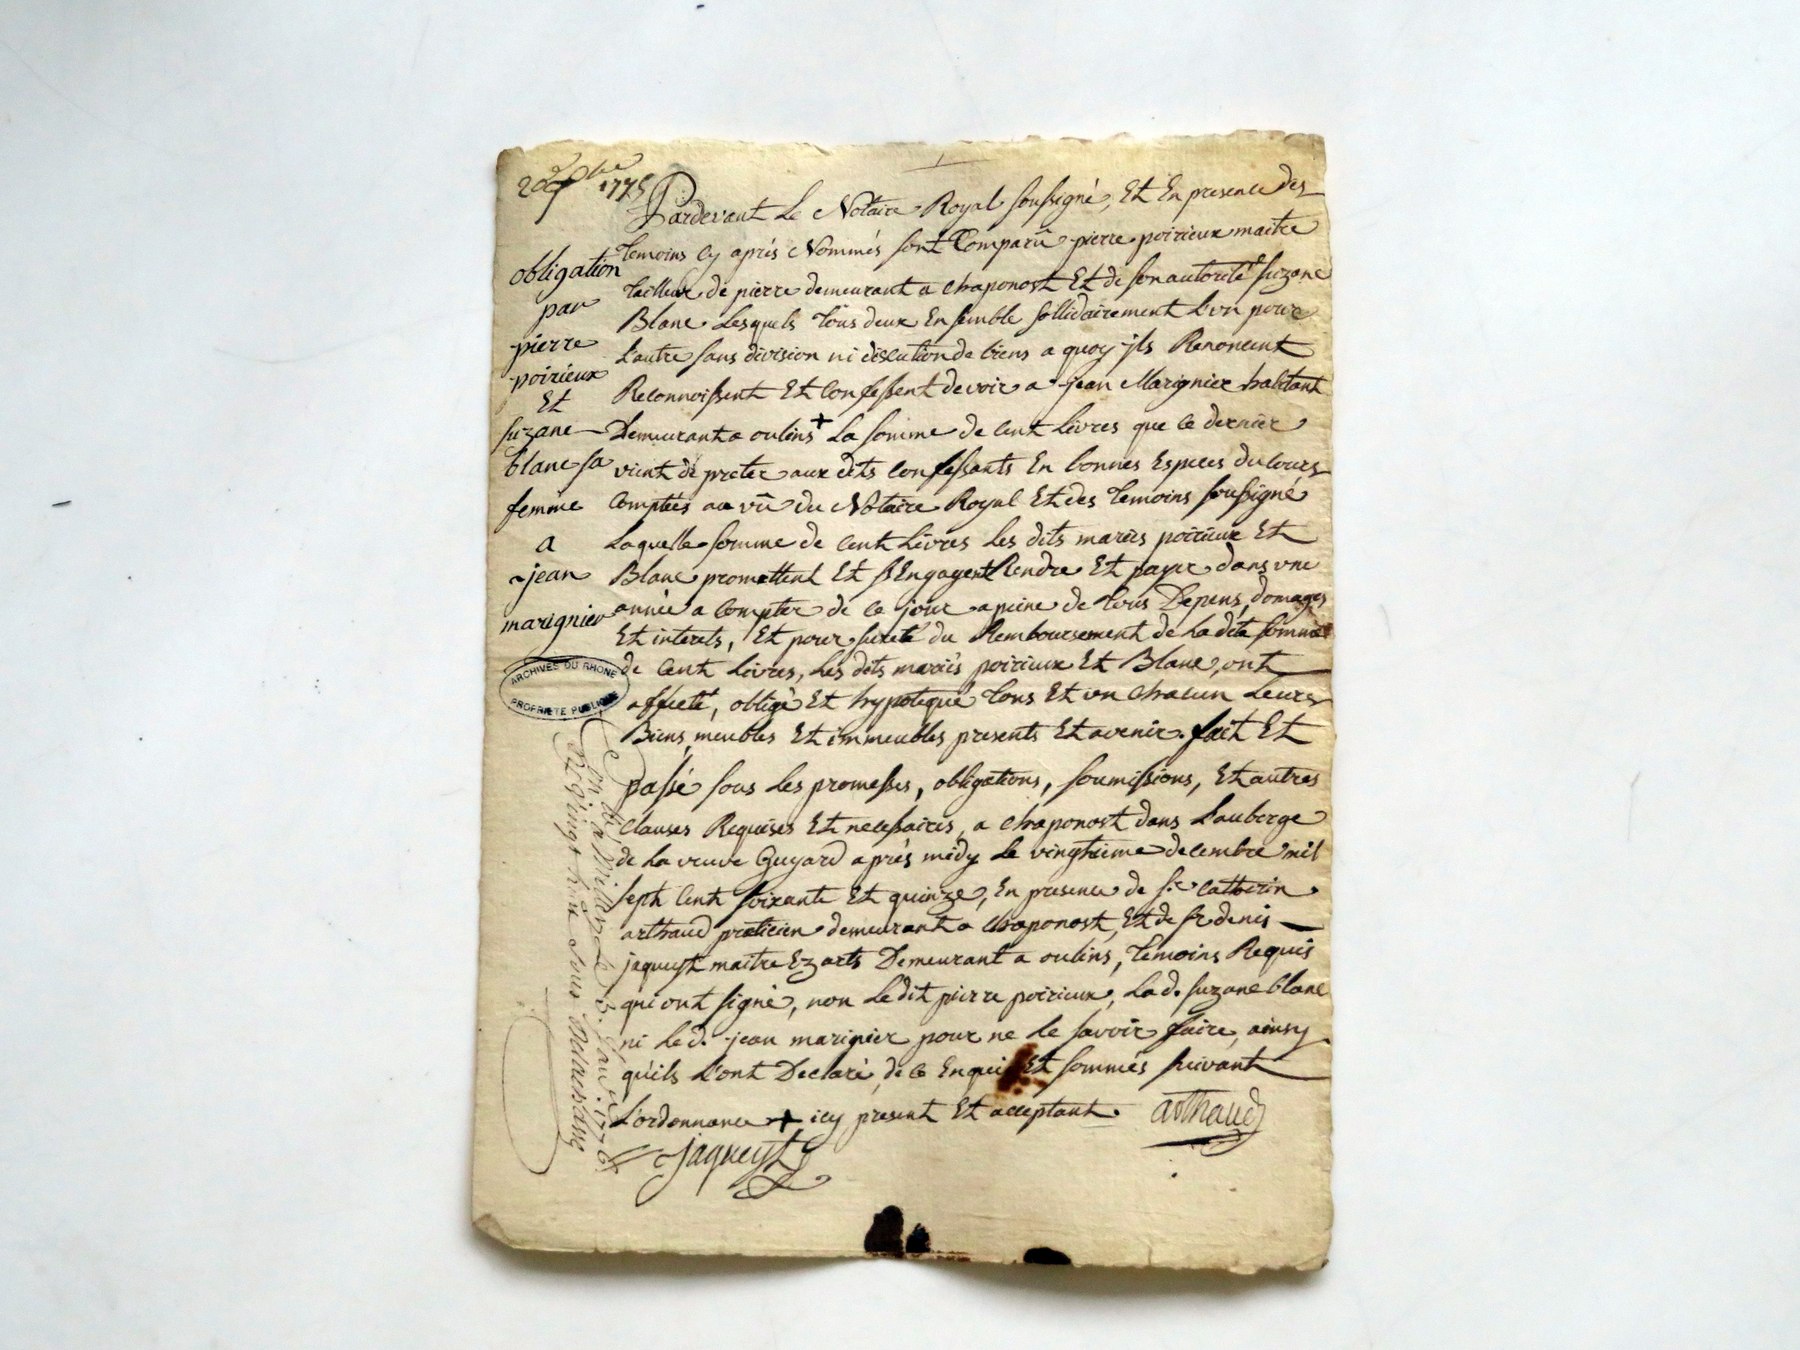 20 Xbre 1775
obligation
par
pierre
poirieux
Et
suzane
blanc sa
femme
a
jean
marignier
ARCHIVES DU RHONE
PROPRIETE PUBLIQUE
Pardevant Le Notaire Royal soussigné, Et En presence des
temoins cy aprés Nommés sont Comparû pierre poirieux maitre
tailleur de pierre demeurant a chaponost Et de son autorité suzane
Blanc Lesquels tous deux Ensemble sollidairement L'un pour
L'autre sans division ni discution de biens a quoy ils Renoncent
Reconnoissent Et confessent devoir a jean Marignier habitant
Demeurant a oulins + La somme de cent Livres que ce dernier
vient de preter aux dits confessants En bonnes Especes du cours
comptées au vû du Notaire Royal Et des temoins soussigné
Laquelle somme de cent Livres Les dits mariés poirieux Et
Blanc promettent Et s'Engagent Rendre Et payer dans une
année a compter de ce jour a peine de tous Depens, domages
Et interets, Et pour sureté du Remboursement de La dite somme
de cent Livres, Les dits mariés poirieux Et Blanc, ont
affecté, obligé Et hypotequé tous Et un chacun Leurs
Biens, meubles Et immeubles presents Et avenir. fait Et
passé sous Les promesses, obligations, soumissions, Et autres
clauses Requises Et necessaires, a chaponost dans L'auberge
de La veuve Guyard aprés midy Le vingtieme decembre mil
sept cent soixante Et quinze, En presence de sr. catherin
arthaud praticien demeurant a chaponost, Et de sr denis
jaqueyt maitre Ez arts Demeurant a oulins, temoins Requis
qui ont signé, non Le dit pierre poirieux, La d. suzane blanc
ni Le d. jean marignier pour ne Le savoir faire, ainsy
qu'ils L'ont Declaré, de ce Enquis Et sommés suivant
L'ordonnance + icy present Et acceptant. arthaud
jaqueyt